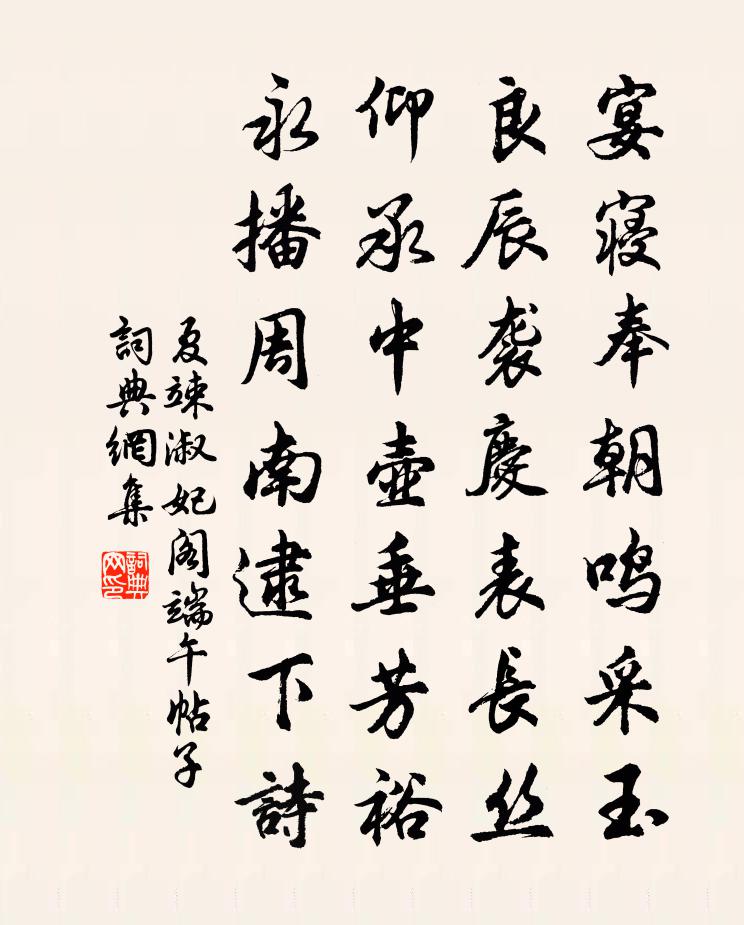 宴寝奉朝鸣采玉
良辰袭慶表長丝
仰承中壶垂芳裕
永播周南逮下詩
夏竦淑妃阁端午帖子
詞典網集
詞典网印